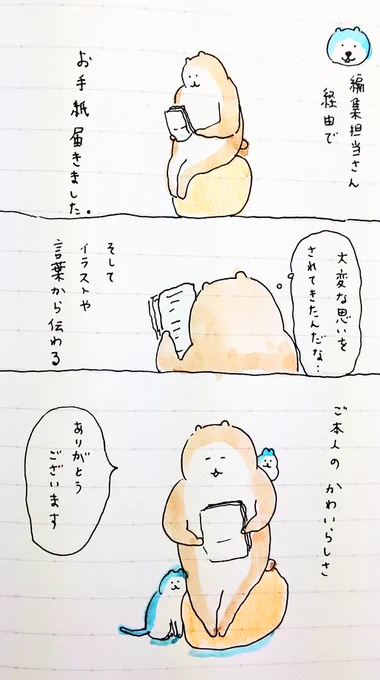 編集担当さん
経由で
お手紙届きました。
大変な思いを
されてきたんだな…
そして
イラストや
言葉から伝わる
ご本人のかわいらしさ
ありがとう
ございます